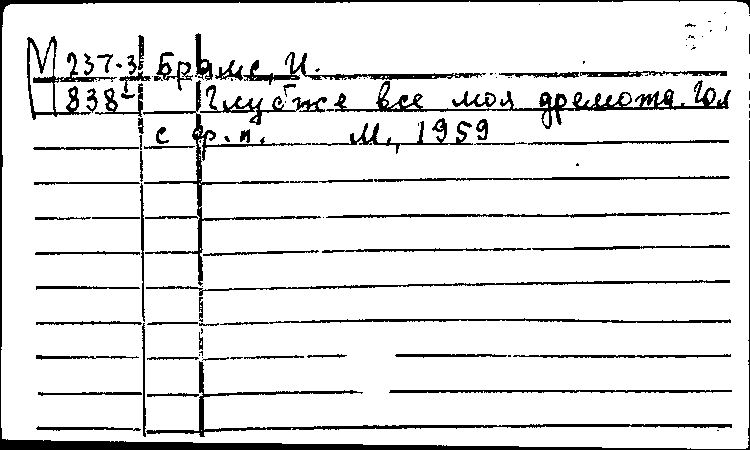 М 237-3 Брамс, И.
838 Глубже все моя дремота. Гол
с ф.п. М., 1959